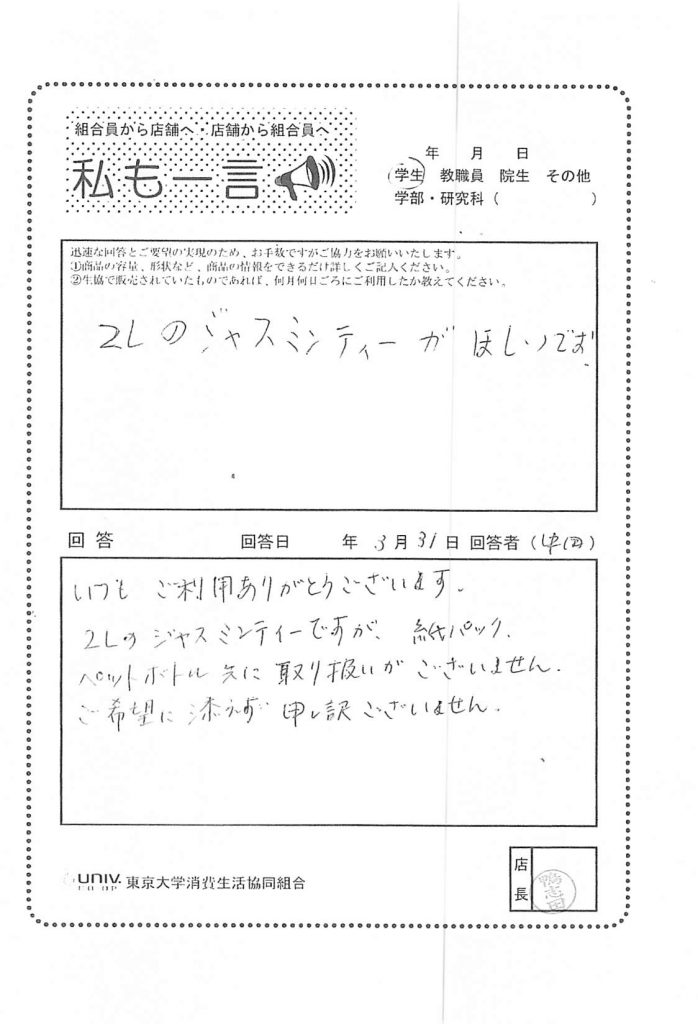 組合員から店舗へ・店舗から組合員へ
私も一言
年 月 日
学生 教職員 院生 その他
学部・研究科( )
迅速な回答とご要望の実現のため、お手数ですがご協力をお願いいたします。
①商品の容量、形状など、商品の情報をできるだけ詳しくご記入ください。
②生協で販売されていたものであれば、何月何日ごろにご利用したか教えてください。
2Lのジャスミンティーがほしいです
回答 回答日 年 3月31日 回答者(中西)
いつも ご利用ありがとうございます。
2Lの ジャスミンティーですが、紙パック、
ペットボトル 共に 取り扱いが ございません。
ご希望に 添えず 申し訳ございません。
UNIV. CO-OP 東京大学消費生活協同組合
店長
鴨志田